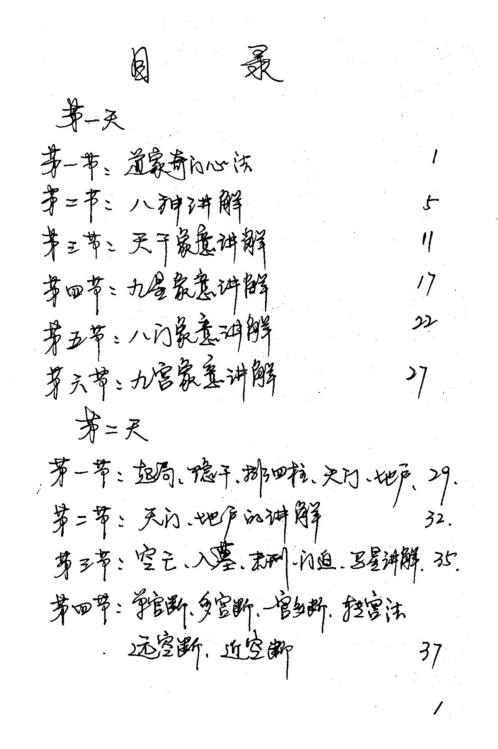 目 录
第一天
第一节：道家奇门心法 1
第二节：八神讲解 5
第三节：天干象意讲解 11
第四节：九星象意讲解 17
第五节：八门象意讲解 22
第六节：九宫象意讲解 27
第二天
第一节：起局、隐干、排四柱、天门、地户、29.
第二节：天门、地户的讲解 32.
第三节：空亡、入墓、击刑、门迫、马星讲解、35.
第四节：单宫断、多宫断、一宫多断、转宫法
远空断、近空断 37
1